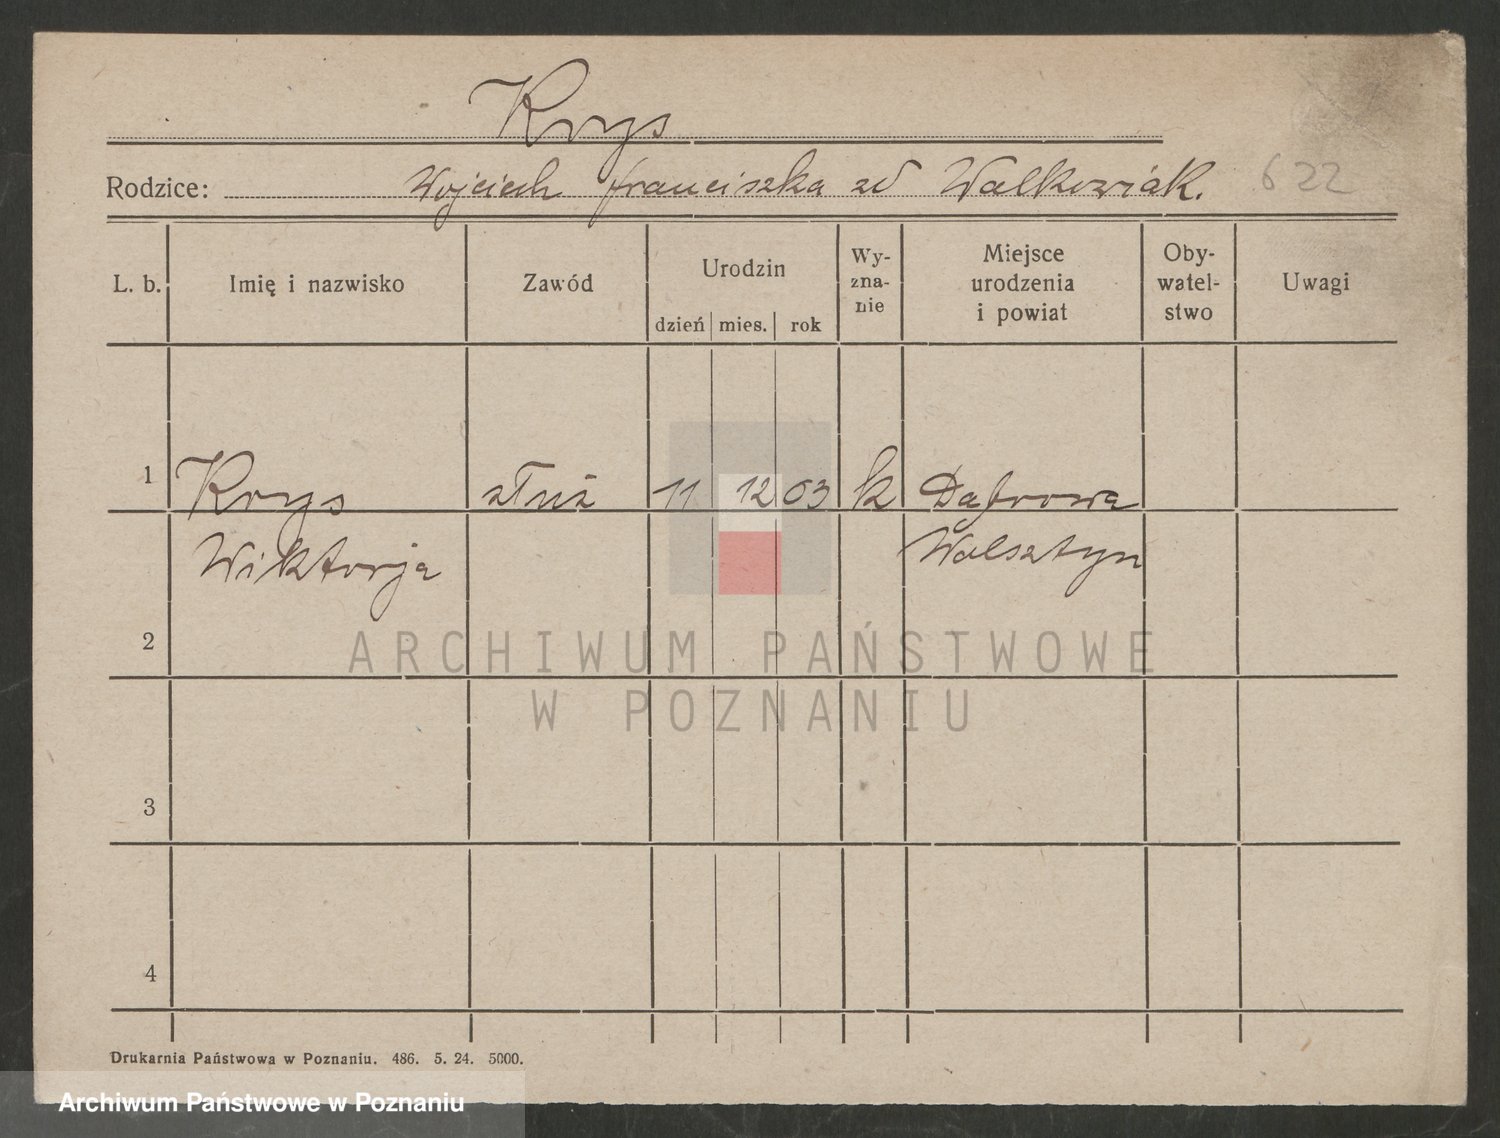 Krys
Rodzice: Wojciech franciszka zd Walkowiak. 622
L. b. Imię i nazwisko Zawód Urodzin dzień mies. rok Wy-zna-nie Miejsce urodzenia i powiat Oby-watel-stwo Uwagi
1 Krys służ 11 12 03 k Dąbrowa
Wiktorja Wolsztyn
2
ARCHIWUM PAŃSTWOWE
W POZNANIU
3
4
Drukarnia Państwowa w Poznaniu. 486. 5. 24. 5000.
Archiwum Państwowe w Poznaniu